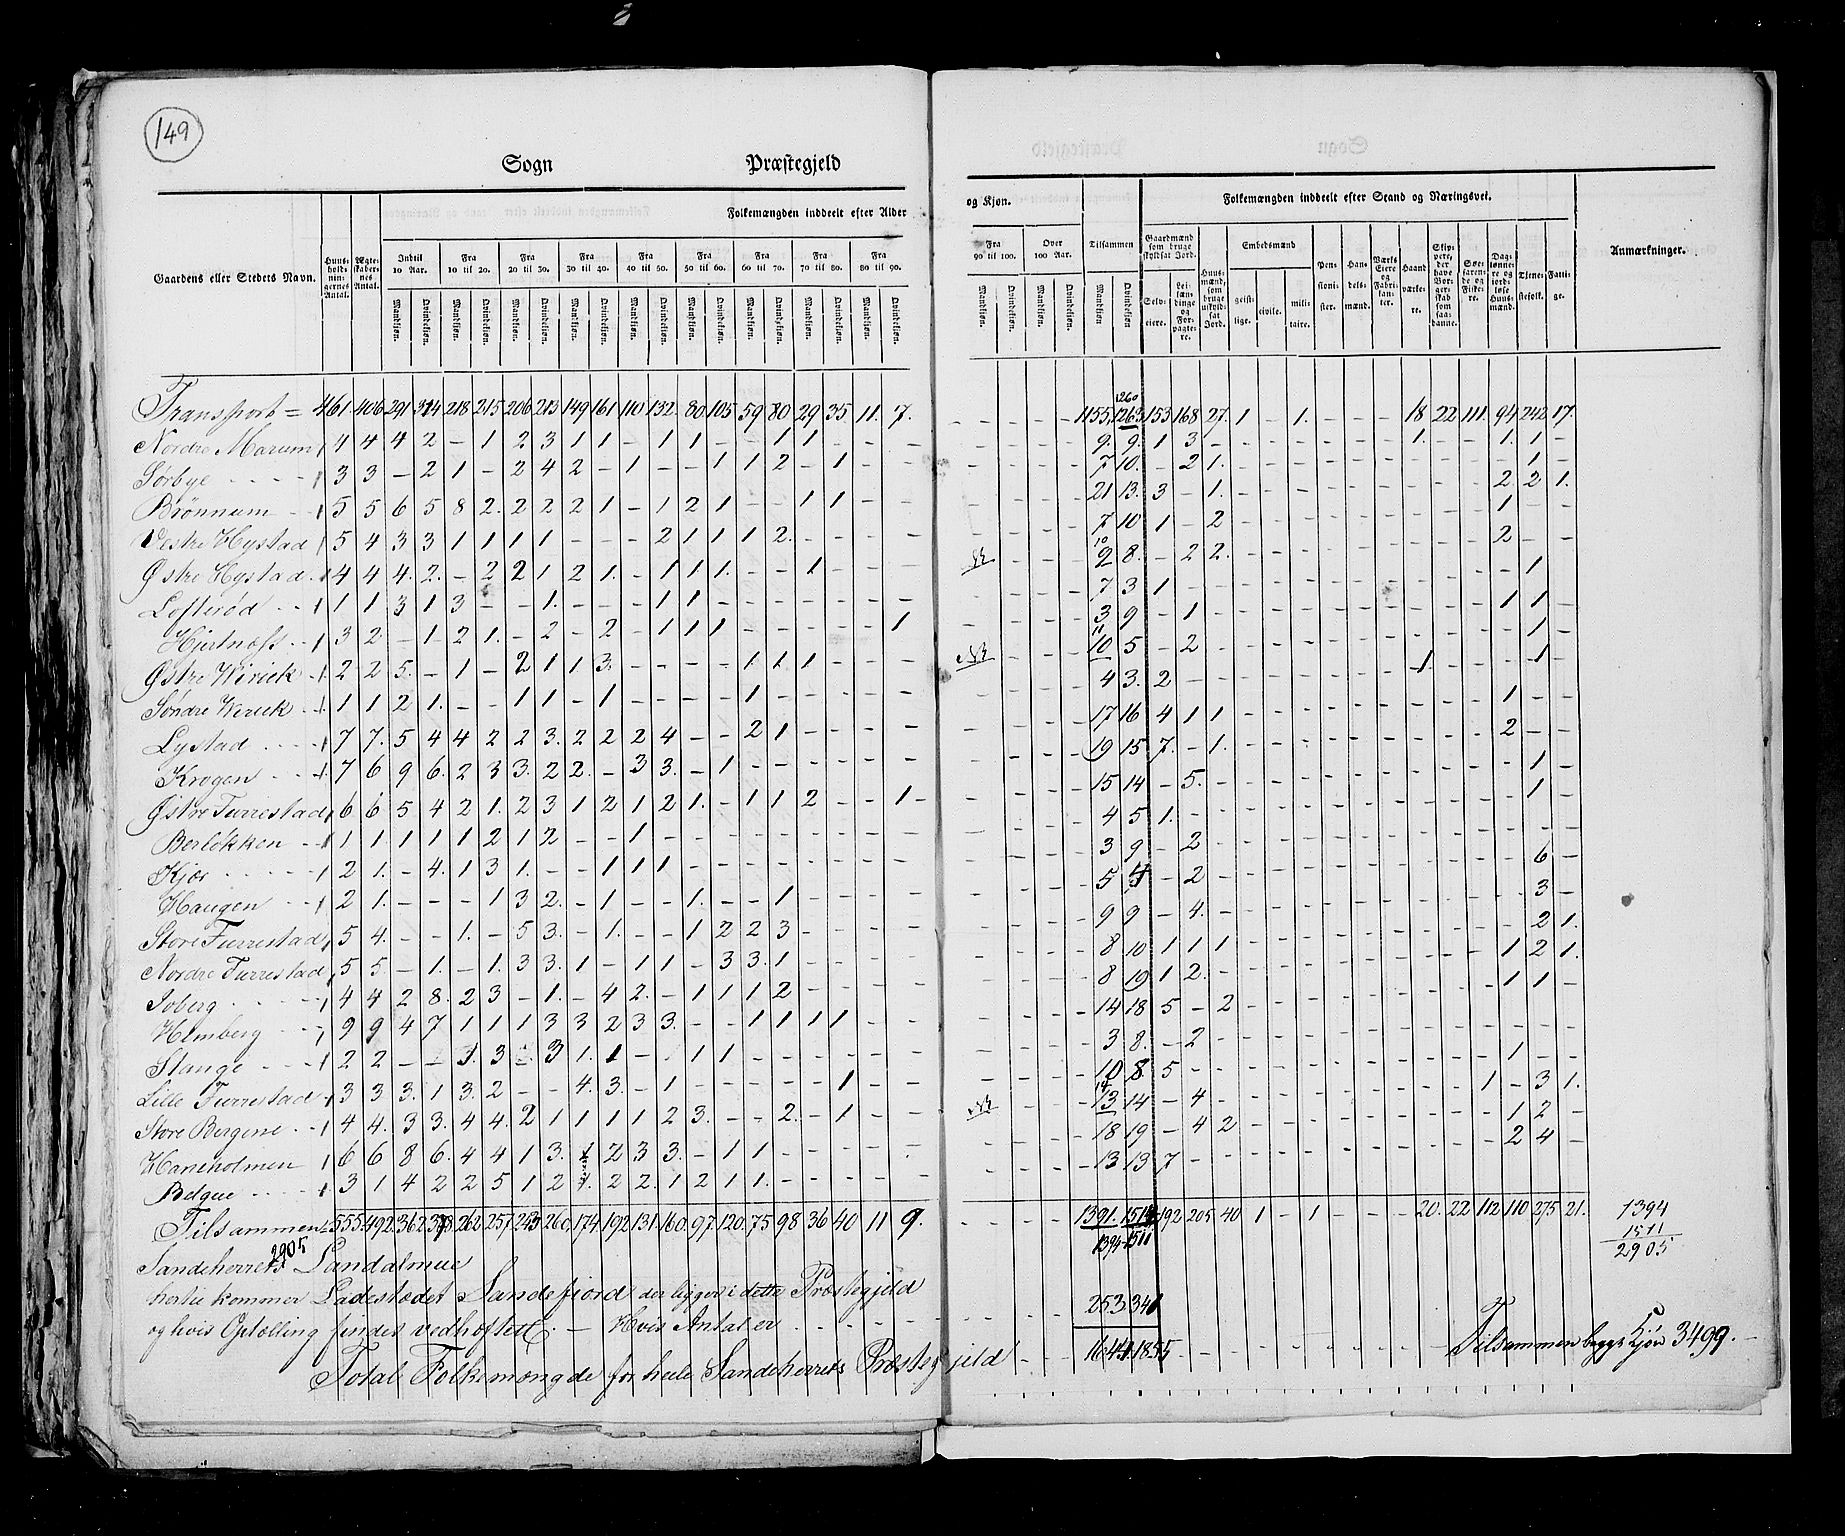 149
Sogn Præstegjeld
Gaardens eller Stedets Navn. Huusholdningernes Antal. Ægteskabernes Antal. Folkemængden inddeelt efter Alder og Kjøn. Tilsammen Folkemængden inddeelt efter Stand og Næringsvei. Anmærkninger.
Indtil 10 Aar. Fra 10 til 20. Fra 20 til 30. Fra 30 til 40. Fra 40 til 50. Fra 50 til 60. Fra 60 til 70. Fra 70 til 80. Fra 80 til 90. Fra 90 til 100. Over 100 Aar.
Mandkjøn. Qvindekjøn.
Gaardmænd som bruge skyldsat Jord. Selveiere. Leilændinge og Forpagtere. Huusmænd, som bruge uskyldsat Jord. Embedsmænd geistlige. civile. militaire. Pensionister. Handelsmænd. Værkseiere og Fabrikanter. Haandværkere. Skippere, der have Borgerskab som saadanne. Søefarende og Fiskere. Daglønnere og jordløse Huusmænd. Tjenestefolk. Fattige.
Transport = 461 406 291 314 218 215 206 213 149 161 110 132 80 105 59 80 29 35 11 7. 1155 1263 1260 153 168 27 1 - 1. - - - 18 22 111 94 242 17.
Nordre Marum 4 4 4 2 - 1 2 3 1 1 - 1 1 - 1 1 - - - 9. 9. 1 3 - 1. 1. 1. -
Sørbye 3 3 - 2 1 - 2 4 2 - 1 - - 1 1 2 - 1 - - 7 10. - 2 1. - 1. -
Brønnum 5 5 6 5 8 2. 2 2 2 1 - 1 2 1 - - 1 1 - - 21 13. 3 - 1. 2. 2 1.
Vestre Hystad 5 4 3 3 1 1 1 1 - - - 2 1 1 1 2. - - 7 10 1 - 2 1 - -
Østre Hystad 4 4 4. 2. - 2 2 1 2 1. - 1 1 1. - - 1 - - - 10 9 8. - 2 2. 2 - -
Lofterød 1 1 3 1 3 - - 1. - - - 1 1 - - - - - - - 7 3 1 - 1 -
Hjertnæss 3 2 - 1 2 1. - 2 - 2 - 1 1 1 - - - - - 1 3 9 - 1 1 1. -
Østre Wirick 2 2 5. - 1 - 2 1 1 3. - - - - 1 1 1 - - - 11 10 5 - 2 - 1. -
Søndre Wirick 1 1 2 1. - - 1 1 - 1 - - - - 1 - - - - - 4 3. 2 1. - 1 -
Lystad 7 7. 5 4 4 2 2 3. 2 2 2 4 - - 2 1 - - - - 17 16 4 1 1 1 - -
Krogen 7 6 9 6. 2 3 3. 2 2. - 3 3. - 1 - - - - - - 19 15 7. - 1. 2 - -
Østre Furrestad 6 6 5 4 2 1. 2 3 1 2 1 2 1. - 1 1 2 - - 1 - 15 14 - 5. - 1 -
Berløkken 1 1 1 1 1 2 1 2 - - 1 - - - - - - - - - 4 5 1. - 1 -
Kjær 2 1. - 4. 1 3 1. - - 1 1 1 - - - - - - - - 3 9 - 2 - - -
Haugen 2 1. - - - 1 3 2. - 1 - - 1. - - 1 - - - - 5 4 - 2 - 6 -
Store Furrestad 5 4. - - 1. - 5 3. - 1. - - 1 2 2 3 - - - - 9 9 - 4. - 3 -
Nordre Furrestad 5 5 - 1. - 1. 3 3. 1 - 1 1 - 3 3. 1 - - - - 8 10 1 1 1 - 2 1.
Soberg 4 4 2 8. 2 3 - 1. - 4 2. - 1 1 1 2 - - - - 8 19 1 2. 1 2 1.
Hemberg 9 9 4 7 1 1 1 3 3 2 3 3. - - 1 1 1 1 - - 14 18 5 - 2 1 1 -
Stange 2 2 - - 1. 3 - 3 1. 1 - - 1 1 - - - - - - 3 8. - 2
Lille Furrestad 3 3 3. 1 3. 2 - - 4. 3. - 1 - - - - - 1 - - 10 8. 5 - 1 - -
Store Bergene 4 4. 3 3. 4 4. 2 1 1 1 1 2 3. - - 2. - 1 - - 14 13 14 - 4 - 1 - 3 1.
Haneholmen 6 6 8 6. 4 4 1 3. 1 2 3 3. - 1 1 - - - - - 18 19 - 4 2 1 2 -
Belgue 3 1 4 2 2 5 1 2 1. 2 2. 1 2 1 1. - - - - - 13 13 7 2 4 -
Tilsammen 555. 492. 362. 378. 262. 257. 243 260. 174. 192 131. 160. 97. 120. 75 98 36 40 11 9. 1391. 1514 192 205 40 1 - 1 - - - 20. 22 112 110 275 21. 1394
1394 1511 1511
2905
Sandeherrets Landalmue 2905
hertil kommer Ladestædet Sandefiord der ligger i dette Præstegjeld 253 341
og hvis Optælling findes vedhæftett. - Hvis Antal er
Total Folkemængde for hele Sandeherrets Præstegjeld 1644 1855 Tilsammen begge Kjøn 3499.